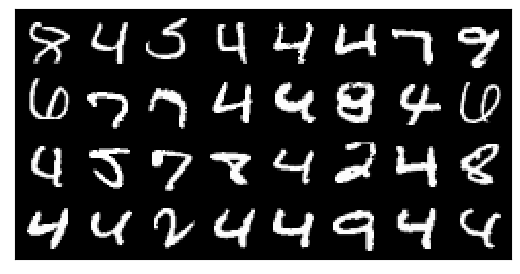 8 4 5 4 4 4 7 9
6 7 7 4 4 8 4 6
4 5 7 8 4 2 4 8
4 4 2 4 4 9 4 4